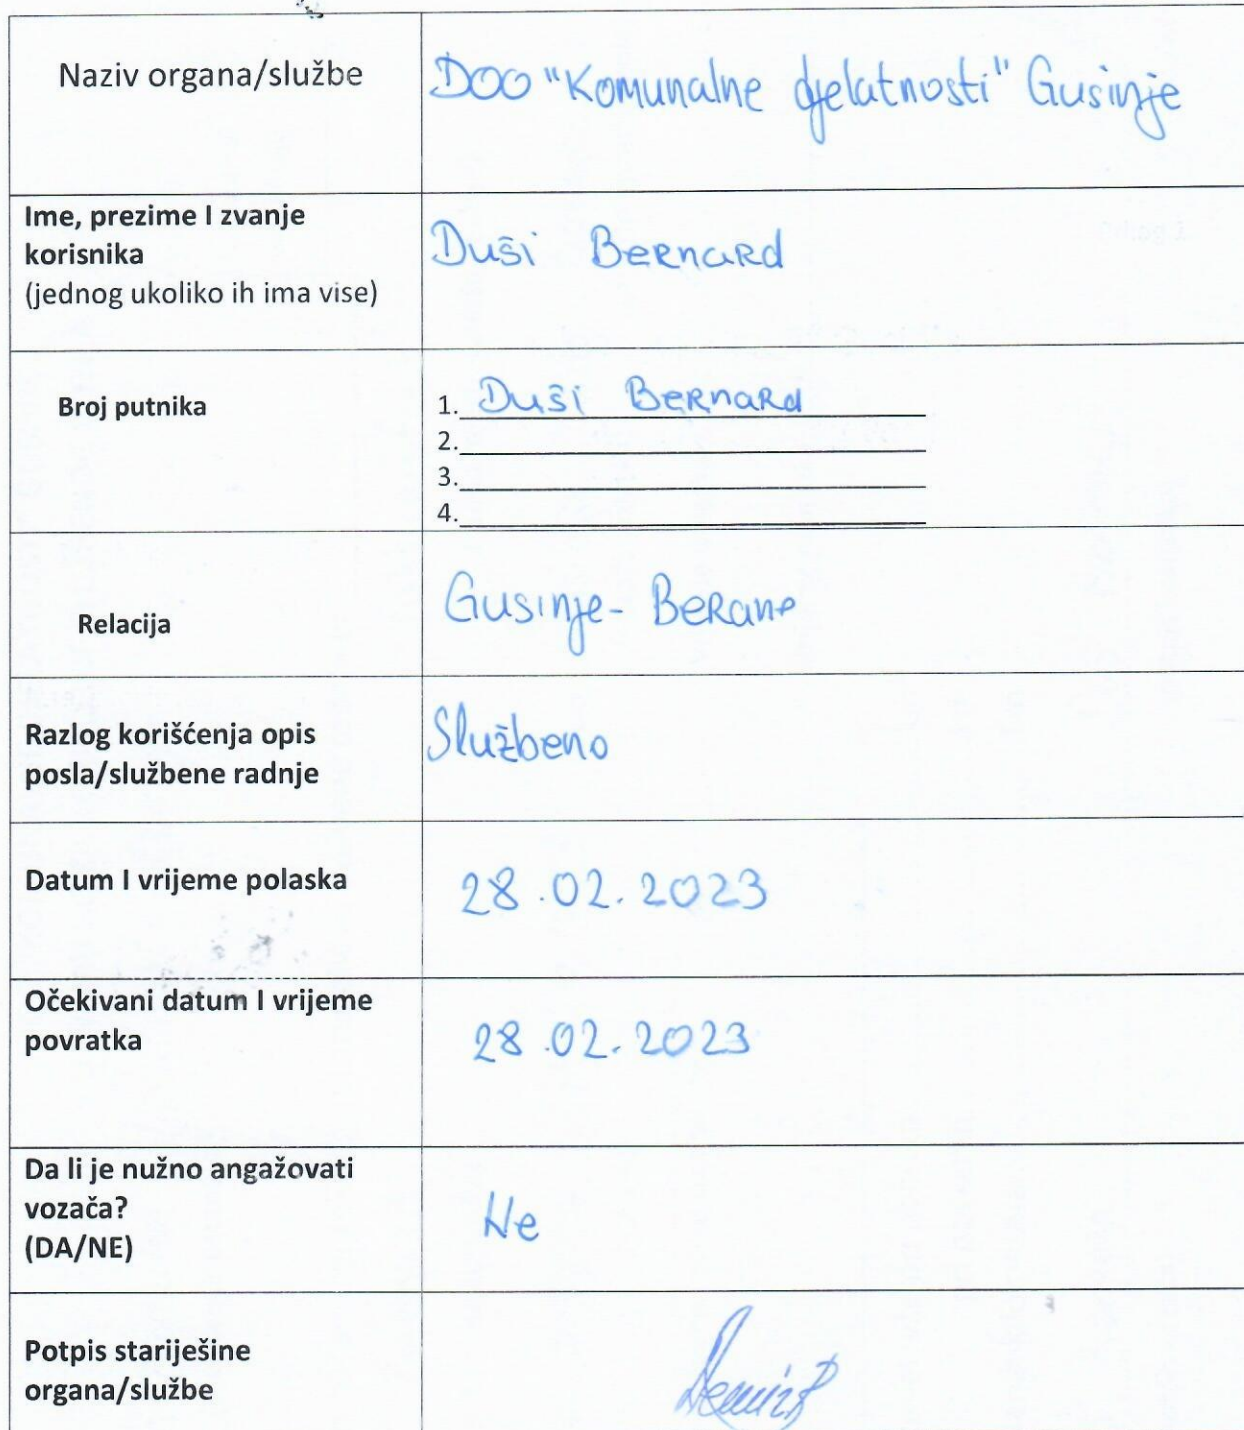 Naziv organa/službe
DOO "Komunalne djelatnosti" Gusinje
Ime, prezime I zvanje
korisnika
(jednog ukoliko ih ima vise)
Duši Bernard
Broj putnika
1. Duši Bernard
2.
3.
4.
Relacija
Gusinje - Berane
Razlog korišćenja opis
posla/službene radnje
Službeno
Datum I vrijeme polaska
28.02.2023
Očekivani datum I vrijeme
povratka
28.02.2023
Da li je nužno angažovati
vozača?
(DA/NE)
Ne
Potpis stariješine
organa/službe